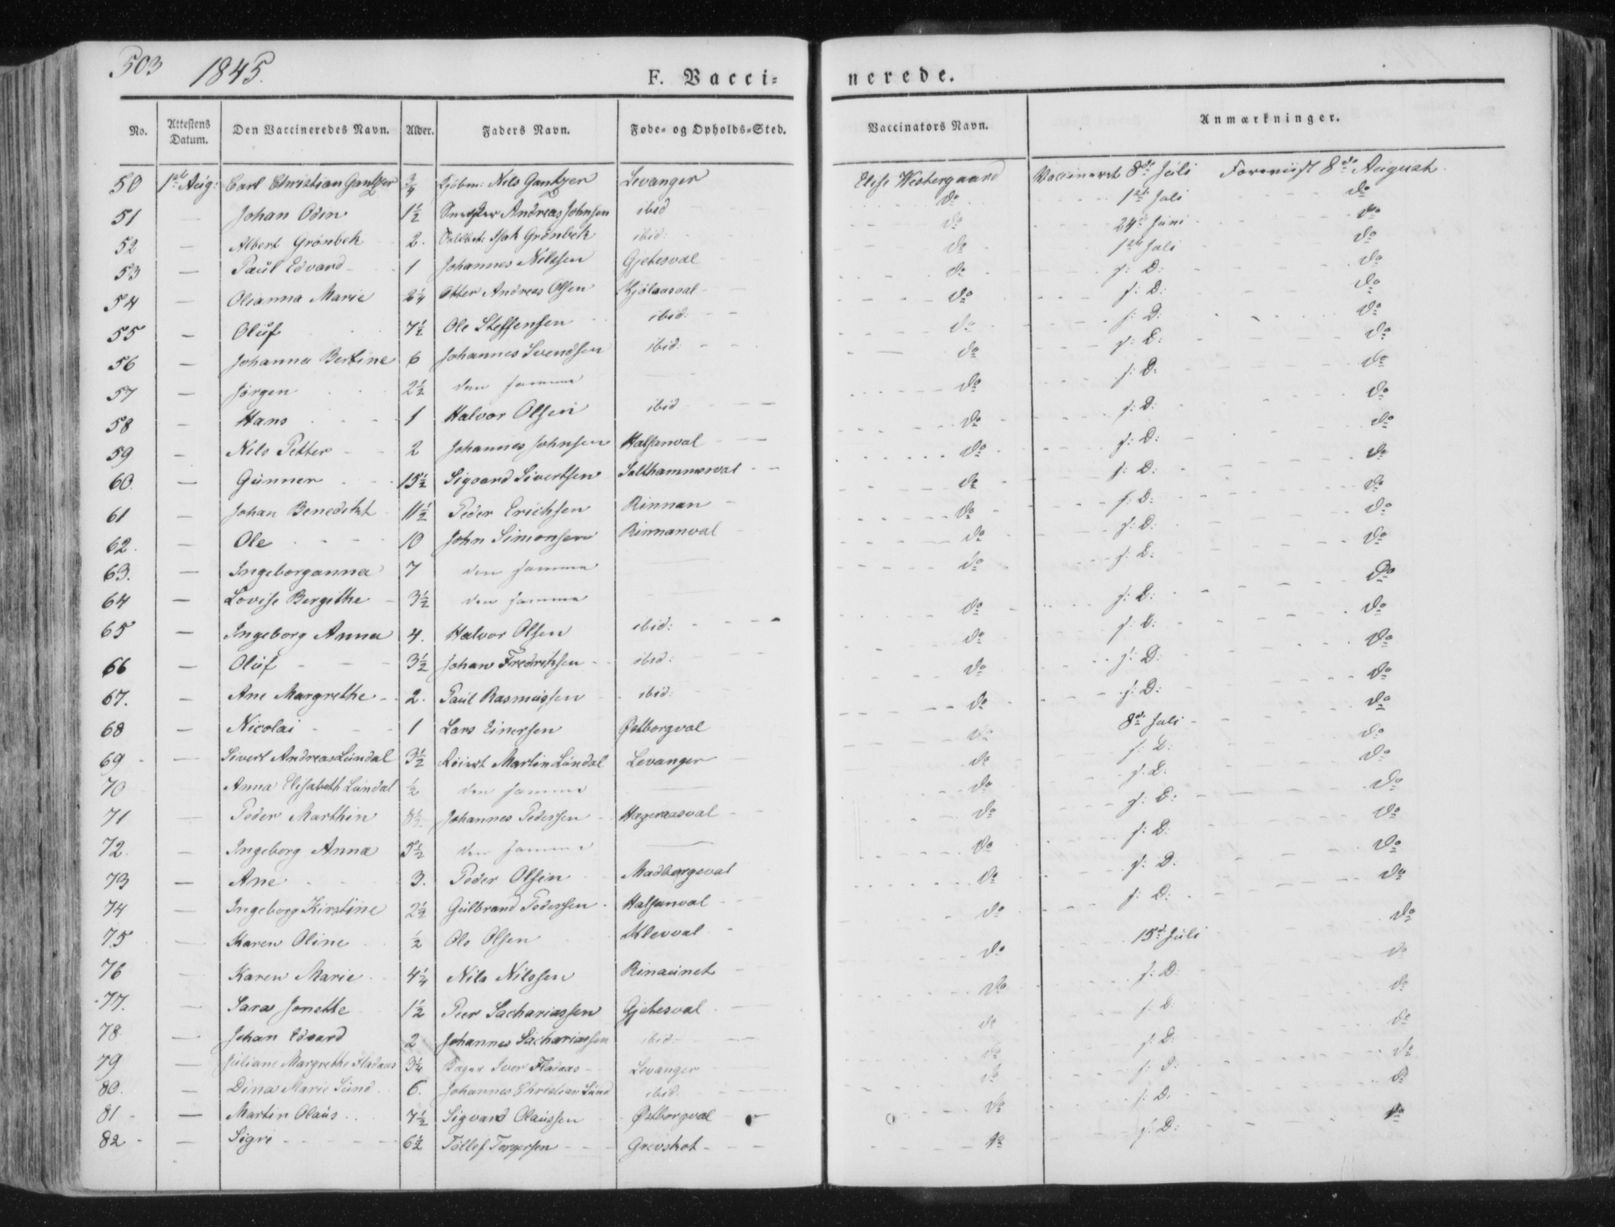 503 1845. F. Vacci= nerede.
No. Attestens Datum. Den Vaccineredes Navn. Alder. Faders Navn. Føde= og Opholds=Sted. Vaccinators Navn. Anmærkninger.
50 1ste Aug: Carl Christian Gantzer 3/4 Kjöbm: Nils Gantzer Levanger Elise Westergaard Vaccineret 8de Juli Foreviist 8de August.
51 — Johan Odin 1½ Andreas Johnsen ibid do 1ste Juli do
52 — Albert Grönbek 2. Isak Grönbek ibid: do 24de Juni do
53 — Paul Edvard 1 Johannes Nilssen Gjetesval do 1ste Juli do
54 — Olianna Marie 2¼ Otter Andreas Olsen do s: D: do
55 — Oluf 7½ Ole Steffensen ibid: do s: D: do
56 — Johanna Bertine 6 Johannes Svendsen ibid: do s: D: do
57 — Jörgen 2½ den samme do s: D: do
58 — Hans 1 Halvor Olsen ibid do s: D: do
59 — Nils Petter 2 Johannes Johnsen Halsanval do s: D: do
60. — Gunner 15½ Sigvard Sivertsen Salthammerval do s: D: do
61 — Johan Benedikt 11½ Peder Erichsen Rinnan do s: D: do
62. — Ole 10 John Simonsen Rinnanval do s: D: do
63. — Ingeborganna 7 den samme do s: D: do
64 — Lovise Bergithe 3½ den samme do s: D: do
65 — Ingeborg Anna 4. Halvor Olsen ibid: do s: D: do
66 — Oluf 3½ Johan Fredrichsen ibid: do s: D: do
67. — Ane Margrethe 2. Paul Rasmussen ibid: do s: D: do
68 — Nicolai 1 Lars Einersen Östborgval do 8de Juli do
69 — Sivert Andreas Lundal 3½ Martin Lundal Levanger do s: D: do
70 Anna Elisabeth Lundal ½ den samme do s: D: do
71 Peder Marthin Johannes Pedersen do s: D: do
72. — Ingeborg Anna 5½ den samme do s: D: do
73 — Ane 3. Peder Olsen Madborgsval do s: D: do
74 — Ingeborg Kirstine 2½ Gulbrand Pedersen Halsanval do s: D: do
75 — Karen Oline ½ Ole Olsen Klevval do 15de Juli do
76 — Karen Marie 4¼ Nils Nilssen Rinaunet do s: D: do
77. — Sara Jonette 1½ Peer Sachariassen Gjetesval do s: D: do
78 — Johan Edvard 2 Johannes Sachariassen ibid: do s: D: do
79 — Juliane Margrethe Fladaas 3¼ Iver Fladaas Levanger do s: D: do
80. — Dina Marie Lund 6. Johannes Christian Lund ibid: do s: D: do
81 — Martin Olaus 7½ Sigvard Olaussen Östborgval do s: D: do
82 — Sigri 6½ Tollef Torgersen Grevskot do